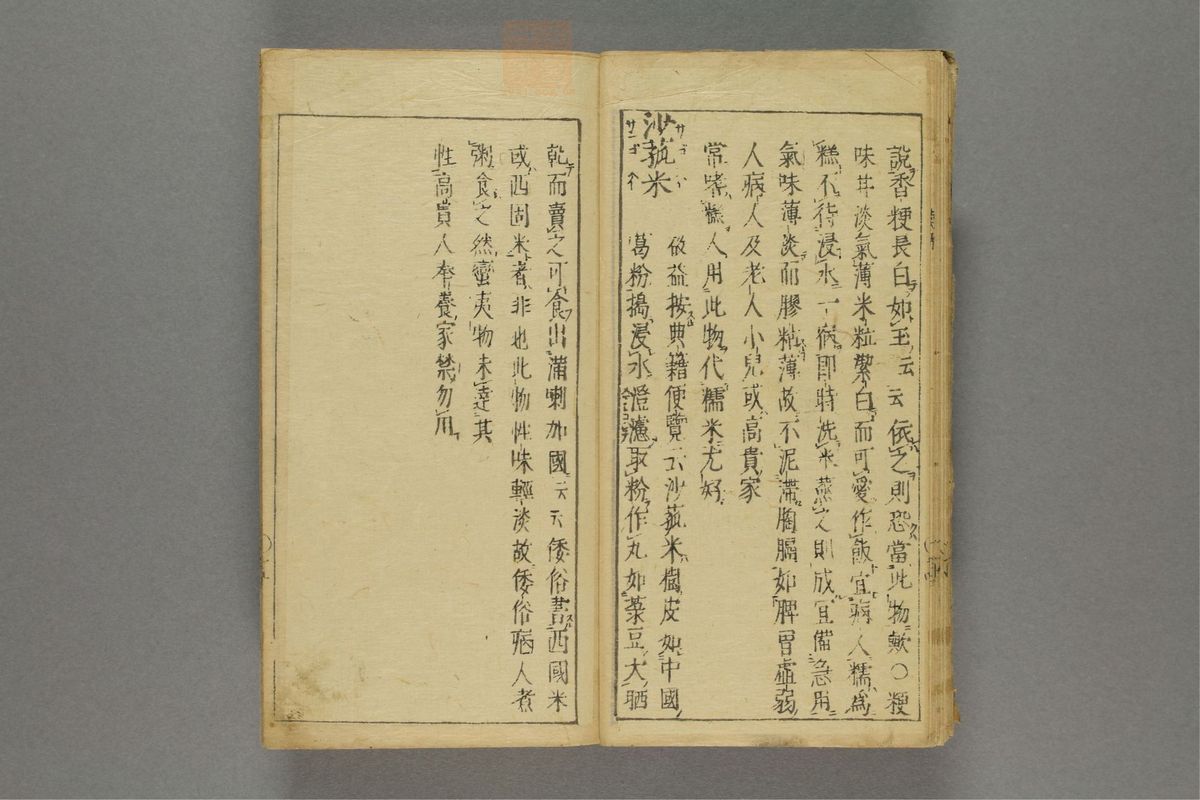 説香粳長白如玉云云依之則恐當此物歟〇粳
味甘淡氣薄米粒潔白而可愛作飯宜病人糯爲
糕不待浸水一宿即時洗米蒸之則成宜備急用
氣味薄淡而膠粘薄故不泥滯胸膈如脾胃虚弱
人病人及老人小兒或高貴家
常嗜糕人用此物代糯米尤好
沙菰米
サゴ
サンゴ
故益按典籍便覽云沙菰米樹皮如中國
葛粉搗浸水澄濾取粉作丸如菉豆大晒
乾而賣之可食出滿喇加國云云倭俗書西國米
或西固米者非也此物性味輕淡故倭俗病人煮
粥食之然蠻夷物未達其
性高貴人奉養家禁勿用